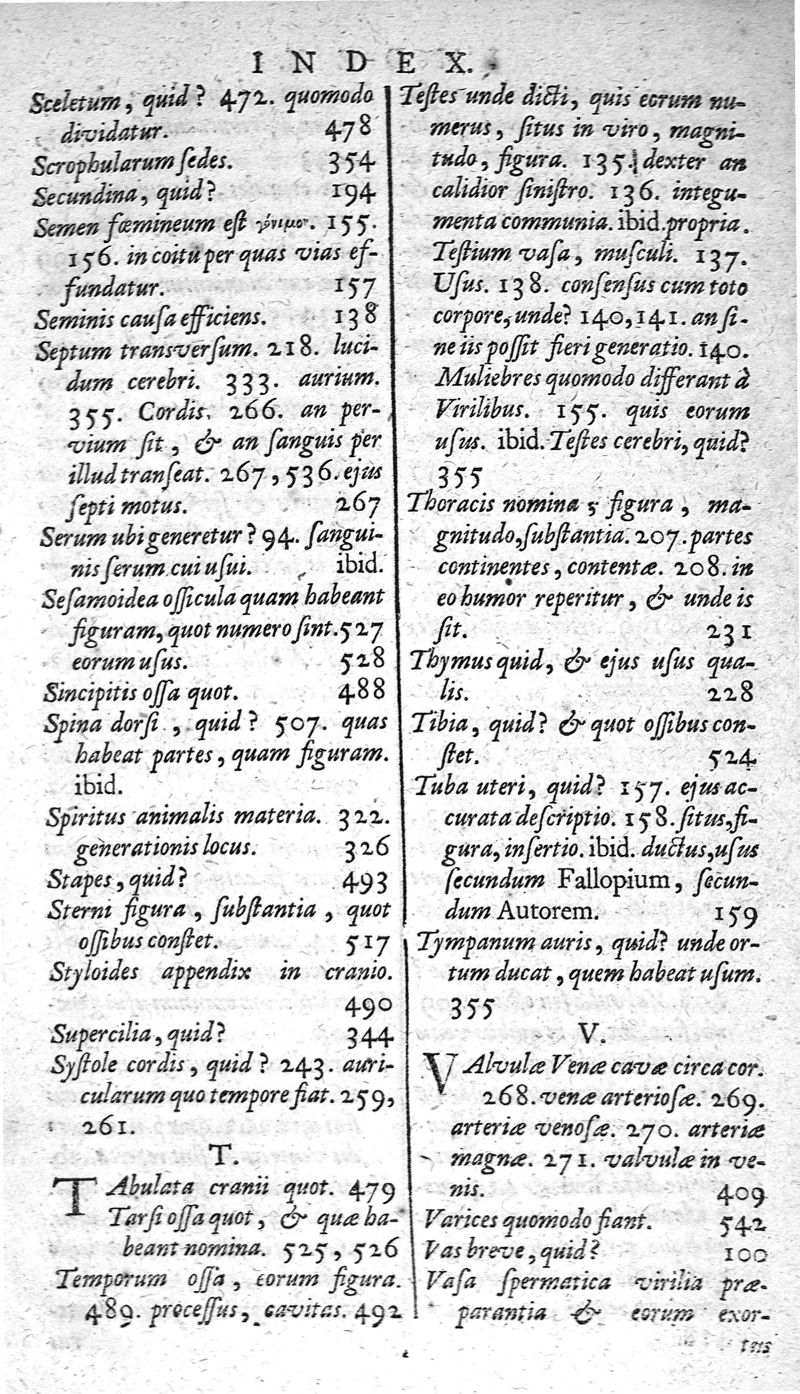 INDEX.
Sceletum, quid? 472. quomodo
dividatur. 478
Scrophularum ſedes. 354
Secundina, quid? 194
Semen fœmineum eſt γόνιμον. 155.
156. in coitu per quas vias ef-
fundatur. 157
Seminis cauſa efficiens. 138
Septum transverſum. 218. luci-
dum cerebri. 333. aurium.
355. Cordis. 266. an per-
vium ſit, & an ſanguis per
illud tranſeat. 267, 536. ejus
ſepti motus. 267
Serum ubi generetur? 94. ſangui-
nis ſerum cui uſui. ibid.
Seſamoidea oſſicula quam habeant
figuram, quot numero ſint. 527
eorum uſus. 528
Sincipitis oſſa quot. 488
Spina dorſi, quid? 507. quas
habeat partes, quam figuram.
ibid.
Spiritus animalis materia. 322.
generationis locus. 326
Stapes, quid? 493
Sterni figura, ſubſtantia, quot
oſſibus conſtet. 517
Styloides appendix in cranio.
490
Supercilia, quid? 344
Syſtole cordis, quid? 243. auri-
cularum quo tempore fiat. 259,
261.
T.
TAbulata cranii quot. 479
Tarſi oſſa quot, & quæ ha-
beant nomina. 525, 526
Temporum oſſa, eorum figura.
489. proceſſus, cavitas. 492
Teſtes unde dicti, quis eorum nu-
merus, ſitus in viro, magni-
tudo, figura. 135. dexter an
calidior ſiniſtro. 136. integu-
menta communia. ibid. propria.
Teſtium vaſa, muſculi. 137.
Uſus. 138. conſenſus cum toto
corpore, unde? 140, 141. an ſi-
ne iis poſſit fieri generatio. 140.
Muliebres quomodo differant à
Virilibus. 155. quis eorum
uſus. ibid. Teſtes cerebri, quid?
355
Thoracis nomina, figura, ma-
gnitudo, ſubſtantia. 207. partes
continentes, contentæ. 208. in
eo humor reperitur, & unde is
ſit. 231
Thymus quid, & ejus uſus qua-
lis. 228
Tibia, quid? & quot oſſibus con-
ſtet. 524
Tuba uteri, quid? 157. ejus ac-
curata deſcriptio. 158. ſitus, fi-
gura, inſertio. ibid. ductus, uſus
ſecundum Fallopium, ſecun-
dum Autorem. 159
Tympanum auris, quid? unde or-
tum ducat, quem habeat uſum.
355
V.
VAlvulæ Venæ cavæ circa cor.
268. venæ arterioſæ. 269.
arteriæ venoſæ. 270. arteriæ
magnæ. 271. valvulæ in ve-
nis. 409
Varices quomodo fiant. 542
Vas breve, quid? 100
Vaſa ſpermatica virilia præ-
parantia & eorum exor-
tus